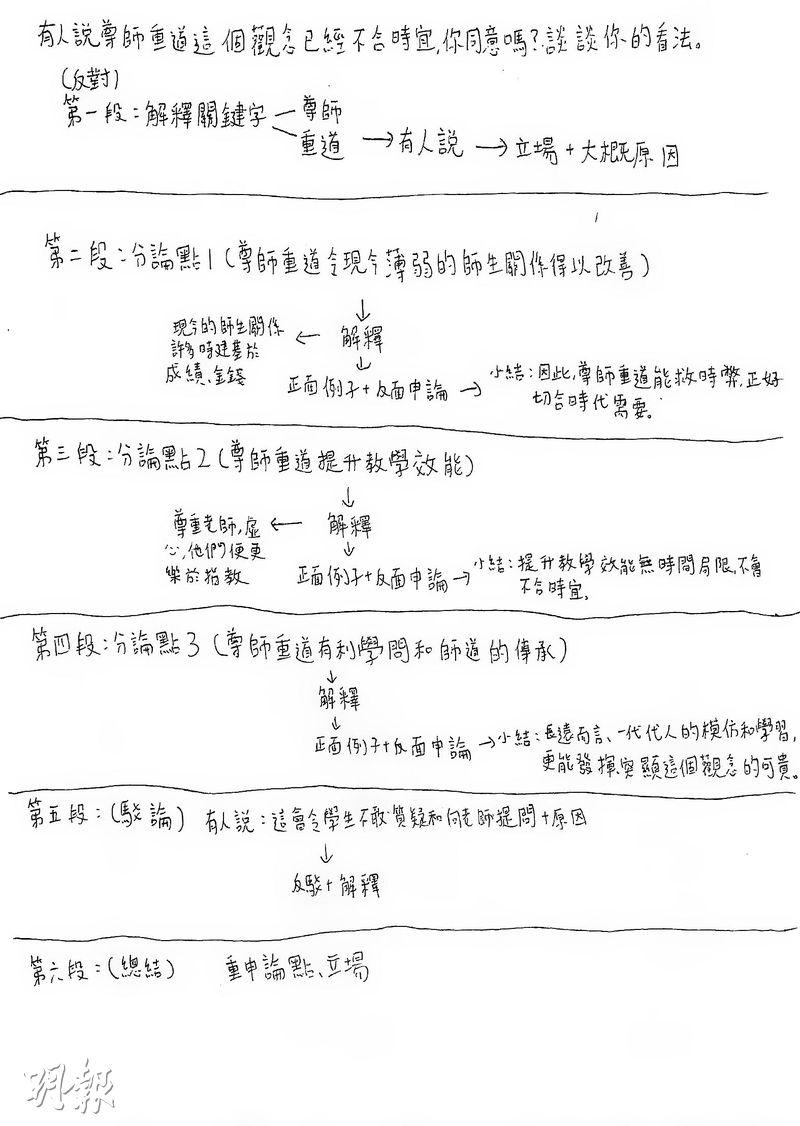 有人說尊師重道這個觀念已經不合時宜,你同意嗎?談談你的看法。
(反對)
第一段:解釋關鍵字 尊師
重道 → 有人說 → 立場 + 大概原因
第二段:分論點1(尊師重道令現今薄弱的師生關係得以改善)
↓
現今的師生關係
許多時建基於
成績、金錢
← 解釋
↓
正面例子+反面申論 → 小結:因此,尊師重道能救時弊,正好
切合時代需要。
第三段:分論點2(尊師重道提升教學效能)
↓
尊重老師,虛
心,他們便更
樂於指教
← 解釋
↓
正面例子+反面申論 → 小結:提升教學效能無時間局限,不會
不合時宜。
第四段:分論點3(尊師重道有利學問和師道的傳承)
↓
解釋
↓
正面例子+反面申論 → 小結:長遠而言、一代代人的模仿和學習,
更能發揮、突顯這個觀念的可貴。
第五段:(駁論) 有人說:這會令學生不敢質疑和向老師提問+原因
↓
反駁+解釋
第六段:(總結) 重申論點、立場
明報